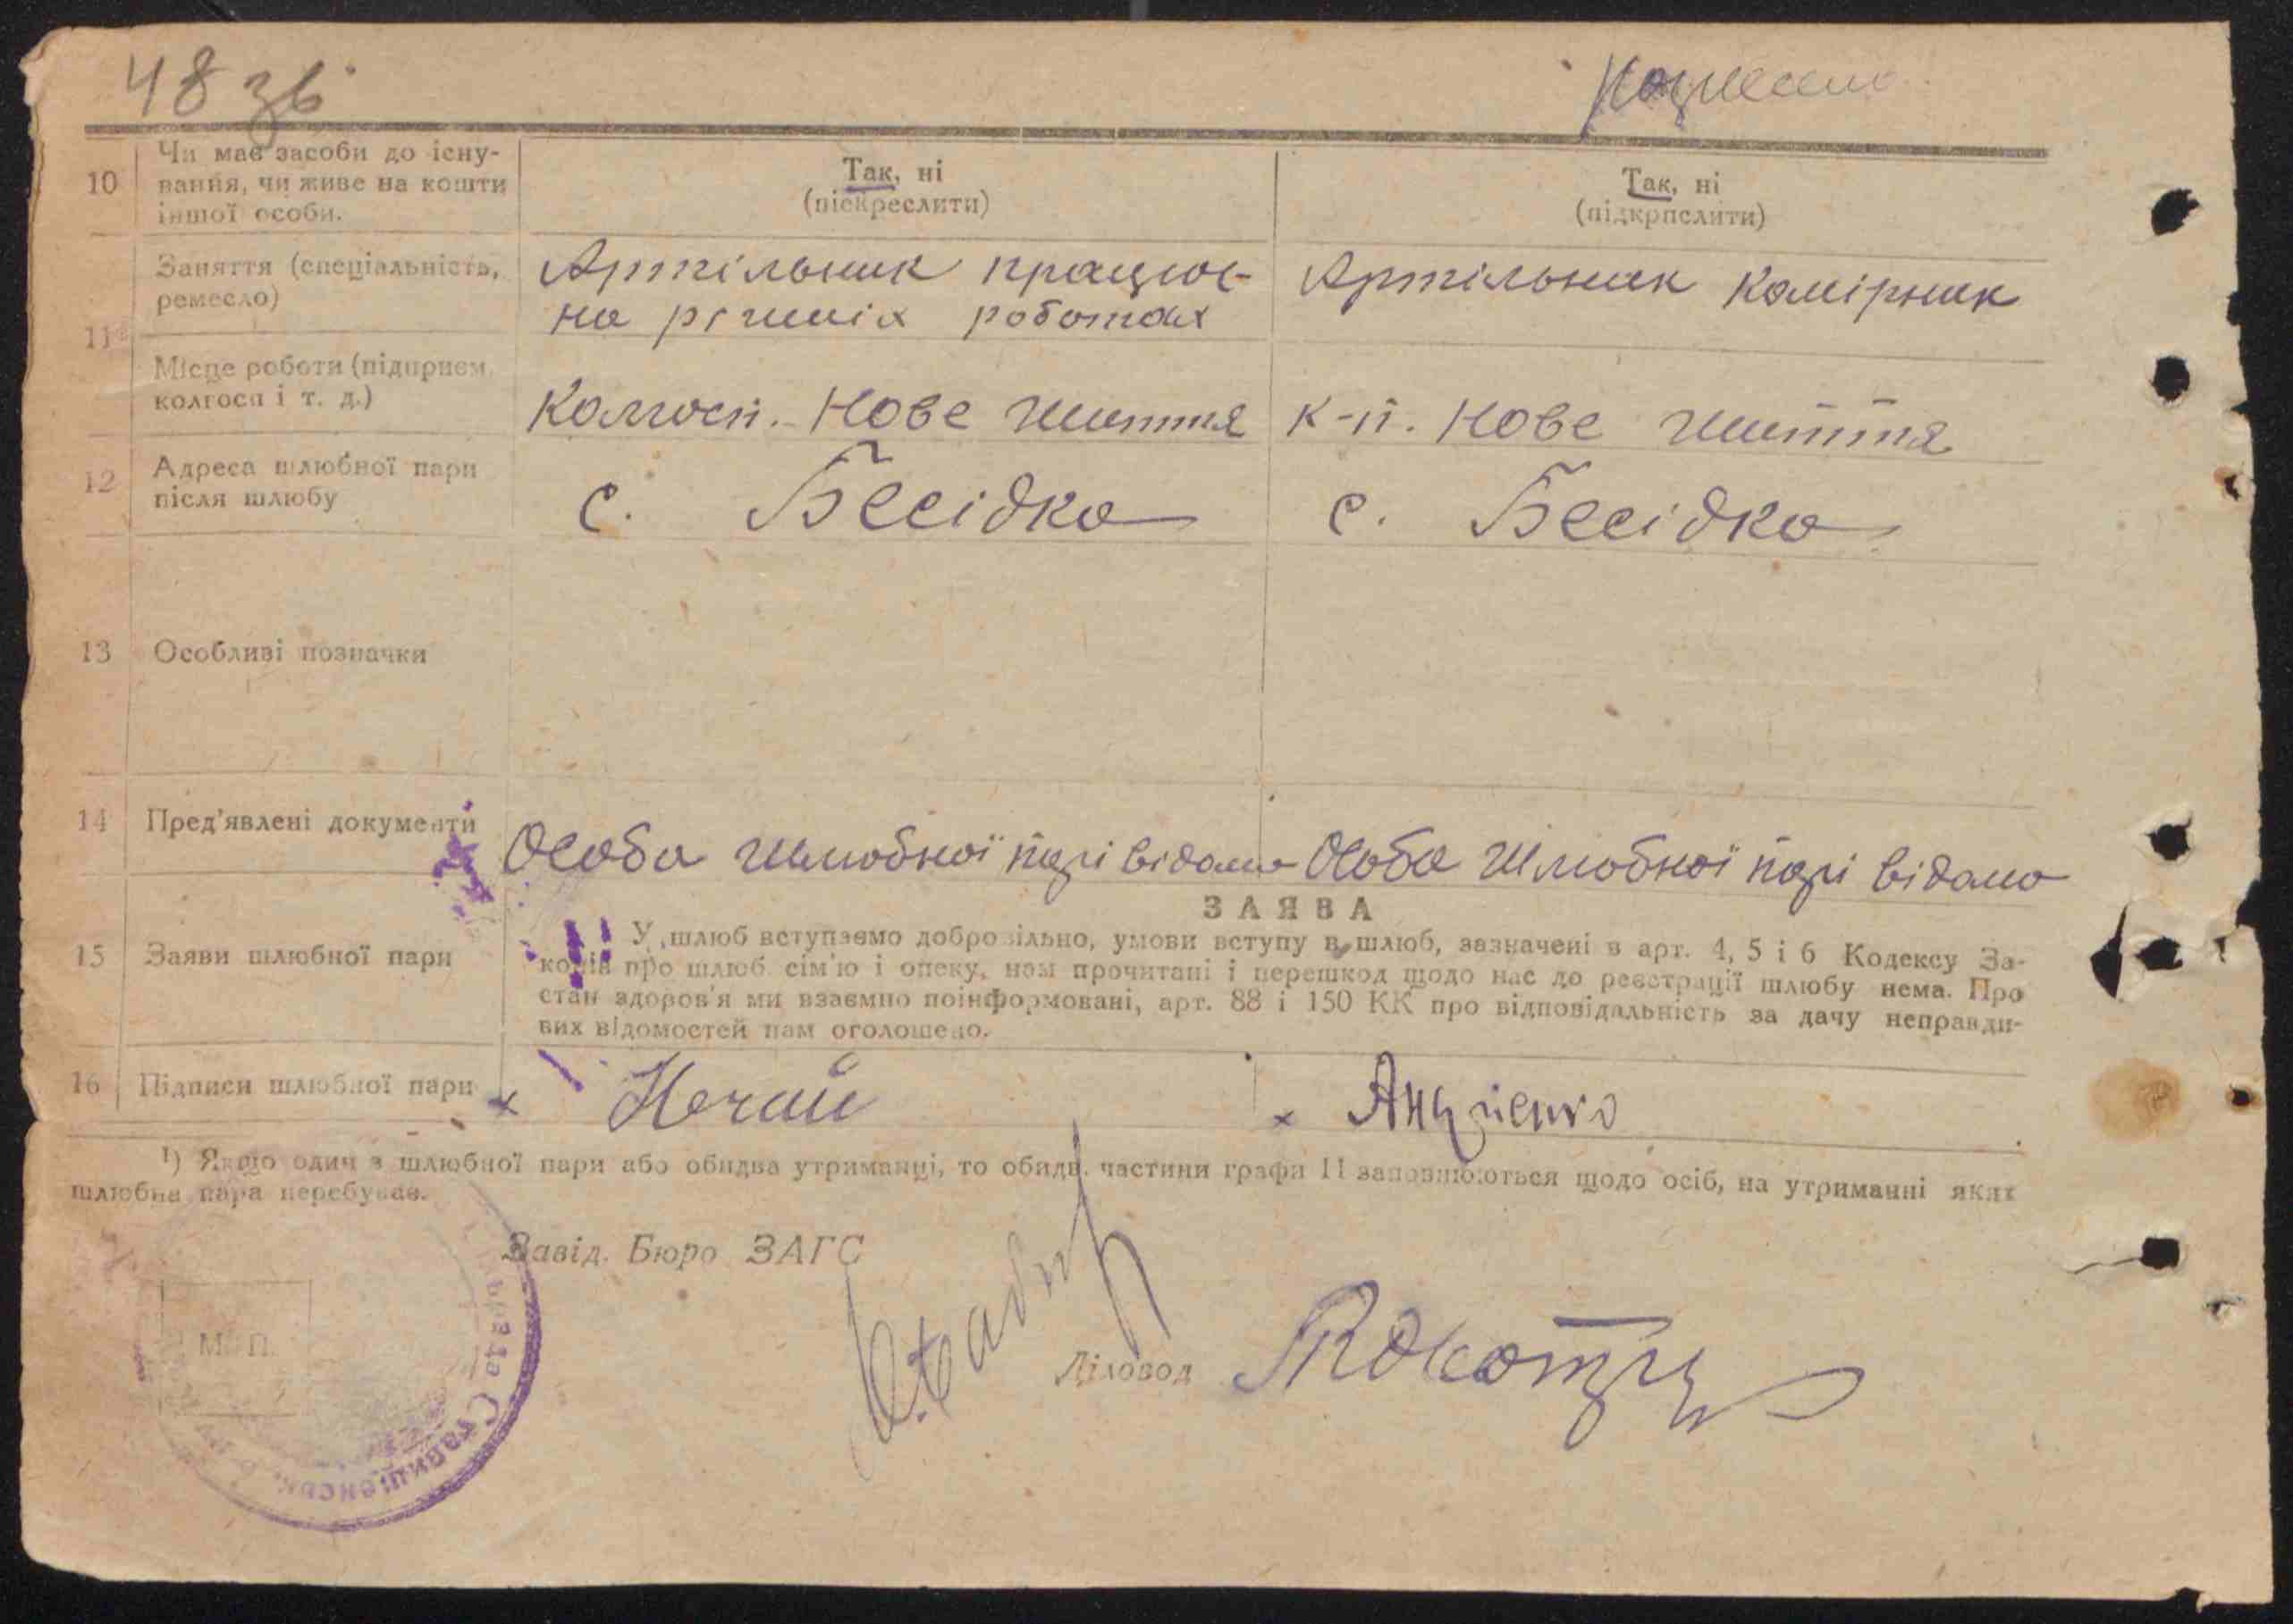 48 зв
10 Чи має засоби до існу-
вання, чи живе на кошти
іншої особи.
Так, ні
(піскреслити)
Так, ні
(підкрпслити)
11 Заняття (спеціальність,
ремесло)
Артільник працює
на різних роботах
Артільник комірник
Місце роботи (підприєм.
колгосп і т. д.)
Колгосп. Нове життя
к-п. Нове життя
12 Адреса шлюбної пари
після шлюбу
с. Бесідка
с. Бесідка
13 Особливі позначки
14 Пред'явлені документи
Особа шлюбної парі відома
Особа шлюбної парі відома
15 Заяви шлюбної пари
ЗАЯВА
У шлюб вступаємо добровільно, умови вступу в шлюб, зазначені в арт. 4, 5 і 6 Кодексу За-
конів про шлюб сім'ю і опеку, нам прочитані і перешкод щодо нас до реєстрації шлюбу нема. Про
стан здоров'я ми взаємно поінформовані, арт. 88 і 150 КК про відповідальність за дачу неправди-
вих відомостей нам оголошено.
16 Підписи шлюбної пари
× Нечай
×
1) Якщо один з шлюбної пари або обидва утриманці, то обидві частини графи 11 заповнюються щодо осіб, на утриманні яких
шлюбна пара перебуває.
Завід. Бюро ЗАГС
М. П.
Діловод